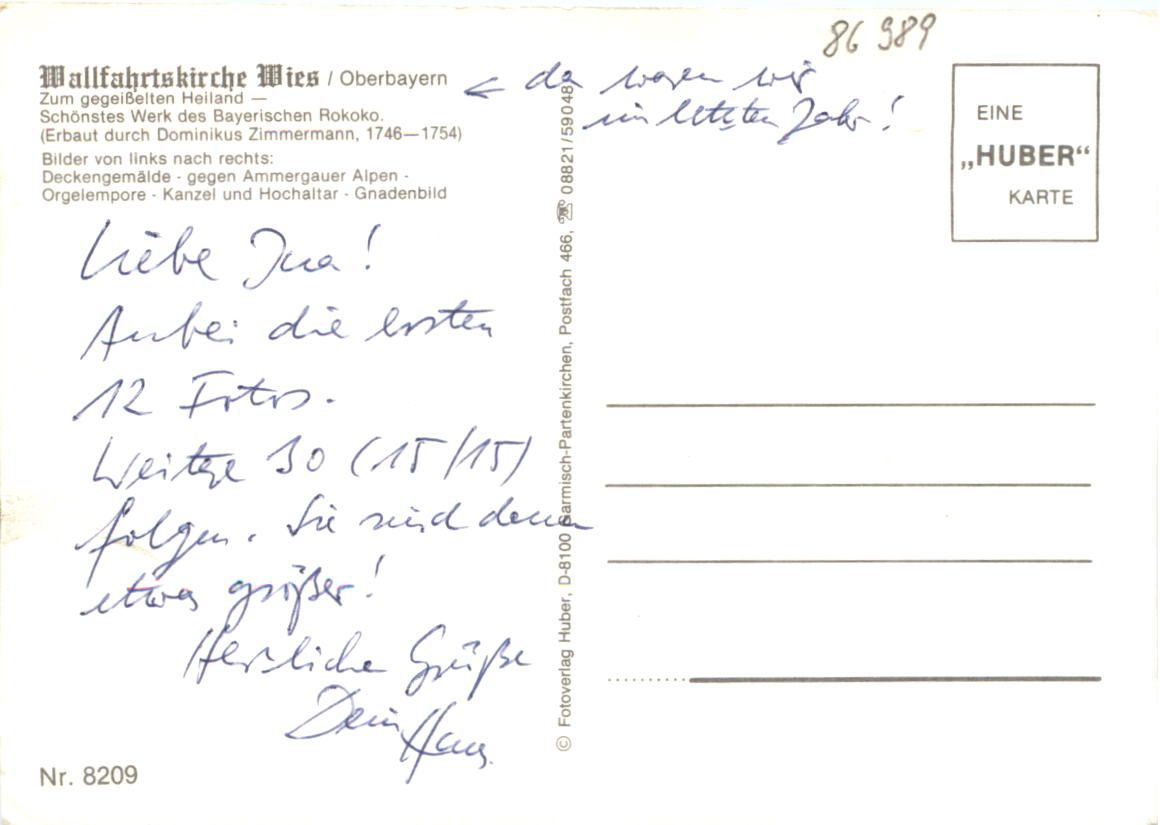 86 989
Wallfahrtskirche Wies / Oberbayern
Zum gegeißelten Heiland —
Schönstes Werk des Bayerischen Rokoko.
(Erbaut durch Dominikus Zimmermann, 1746—1754)
Bilder von links nach rechts:
Deckengemälde - gegen Ammergauer Alpen -
Orgelempore - Kanzel und Hochaltar - Gnadenbild
← da waren wir
im letzten Jahr!
Liebe Ina!
Anbei die ersten
12 Fotos.
Weitere 30 (15/15)
folgen. Sie sind denen
etwas größer!
Herzliche Grüße
Dein Hans.
Nr. 8209
© Fotoverlag Huber, D-8100 Garmisch-Partenkirchen, Postfach 466, ☏ 08821/59048
EINE
„HUBER“
KARTE